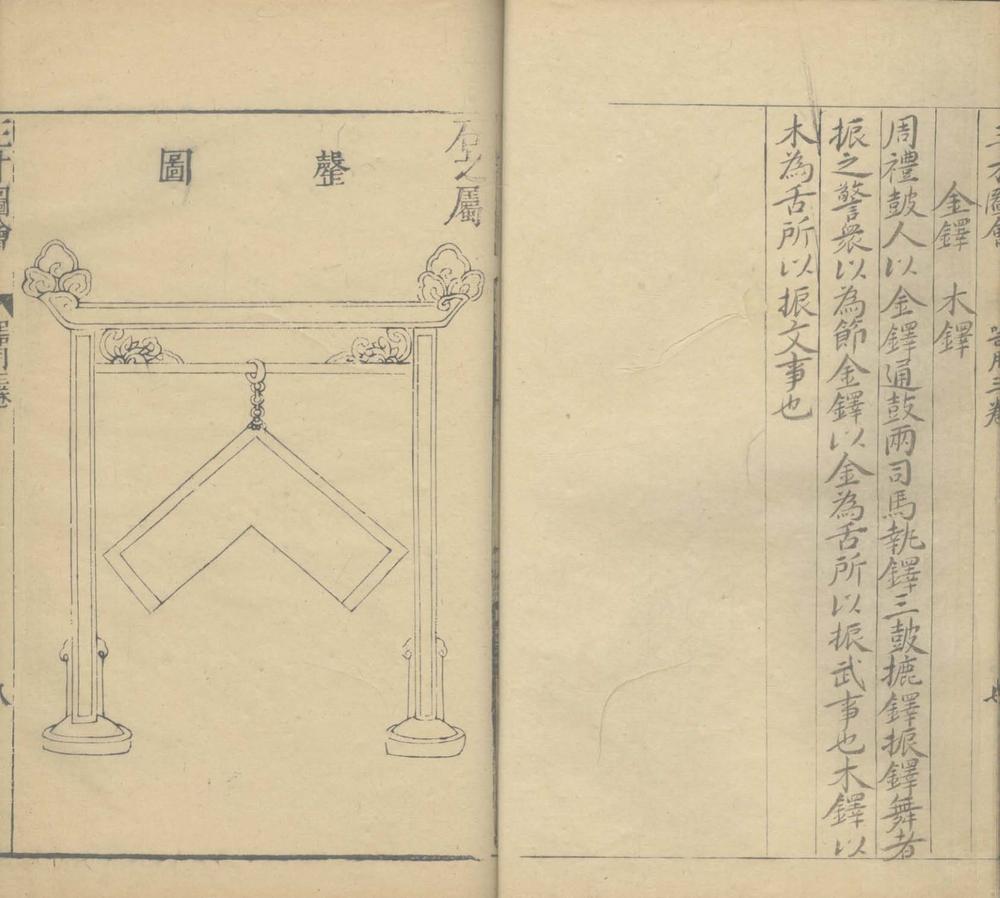 三才圖會 器用三卷
金鐸 木鐸
周禮鼓人以金鐸通鼓兩司馬執鐸三鼓摝鐸振鐸舞者
振之警衆以為節金鐸以金為舌所以振武事也木鐸以
木為舌所以振文事也
石之屬
磬圖
三才圖會 器用三卷 八